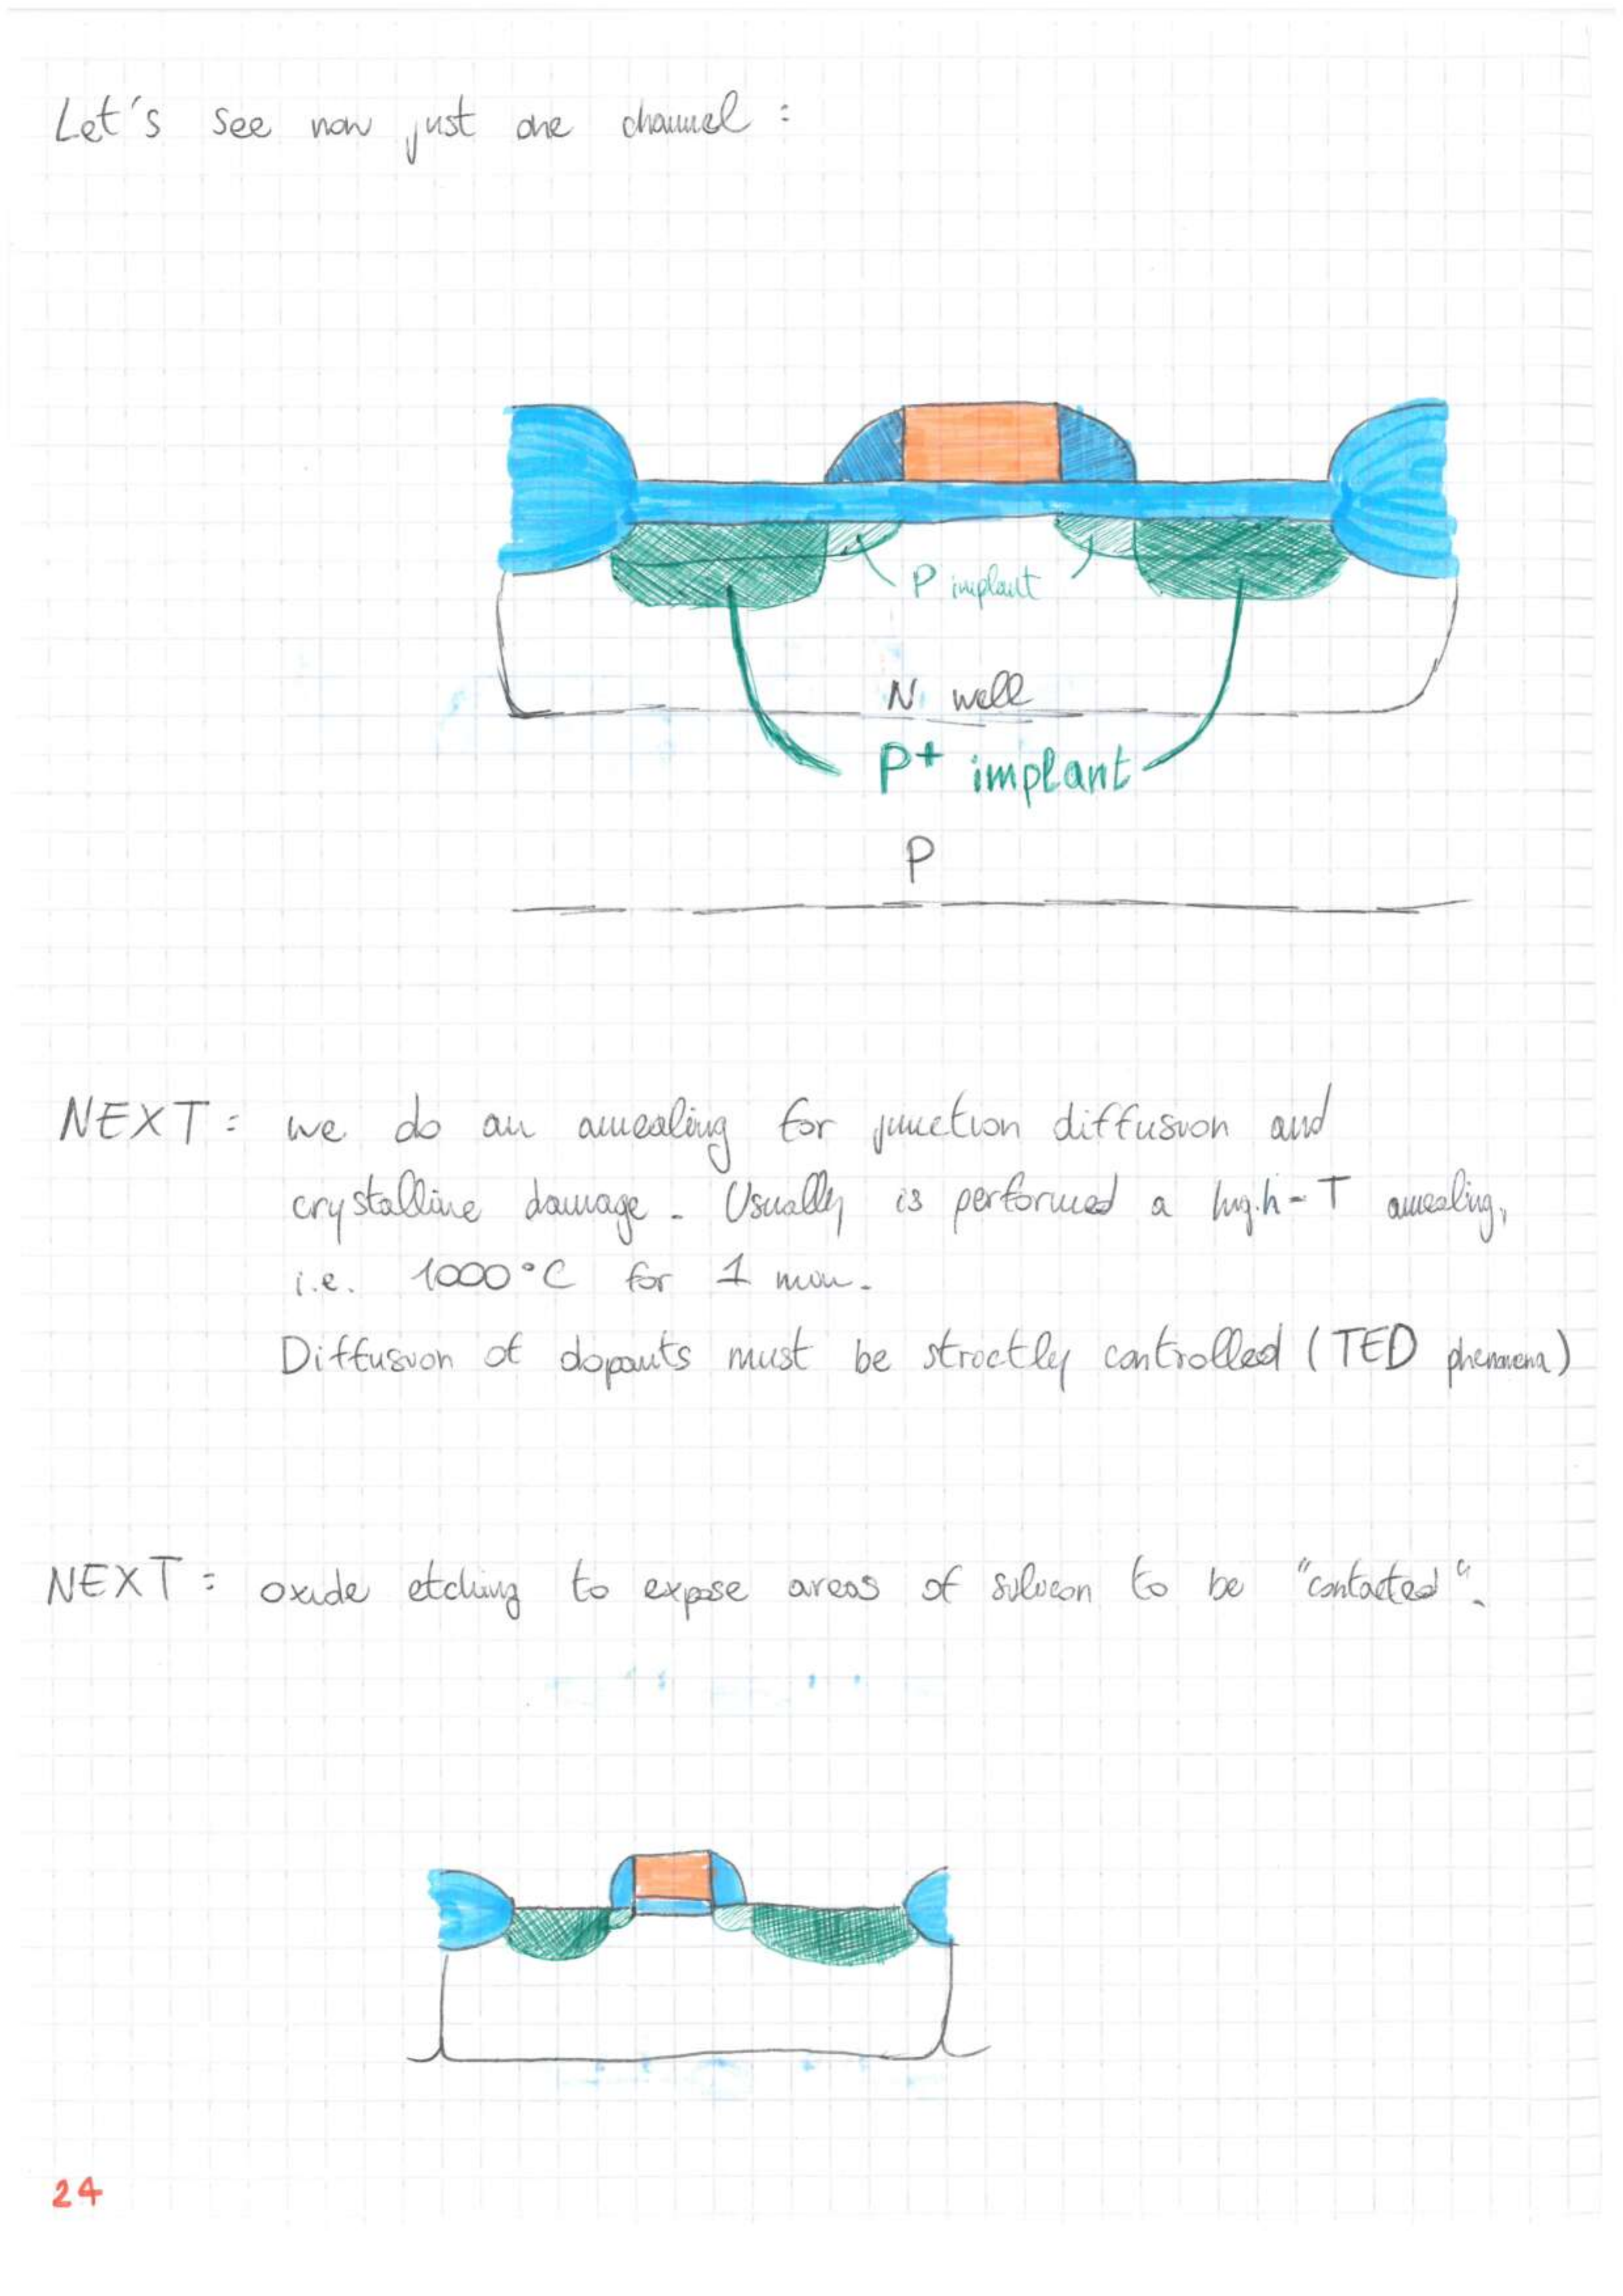 Let's see now just one channel :
P implant
N well
P+ implant
P
NEXT : we do an annealing for junction diffusion and
crystalline damage. Usually is performed a high-T annealing,
i.e. 1000°C for 1 min.
Diffusion of dopants must be strictly controlled (TED phenomena)
NEXT : oxide etching to expose areas of silicon to be "contacted".
24